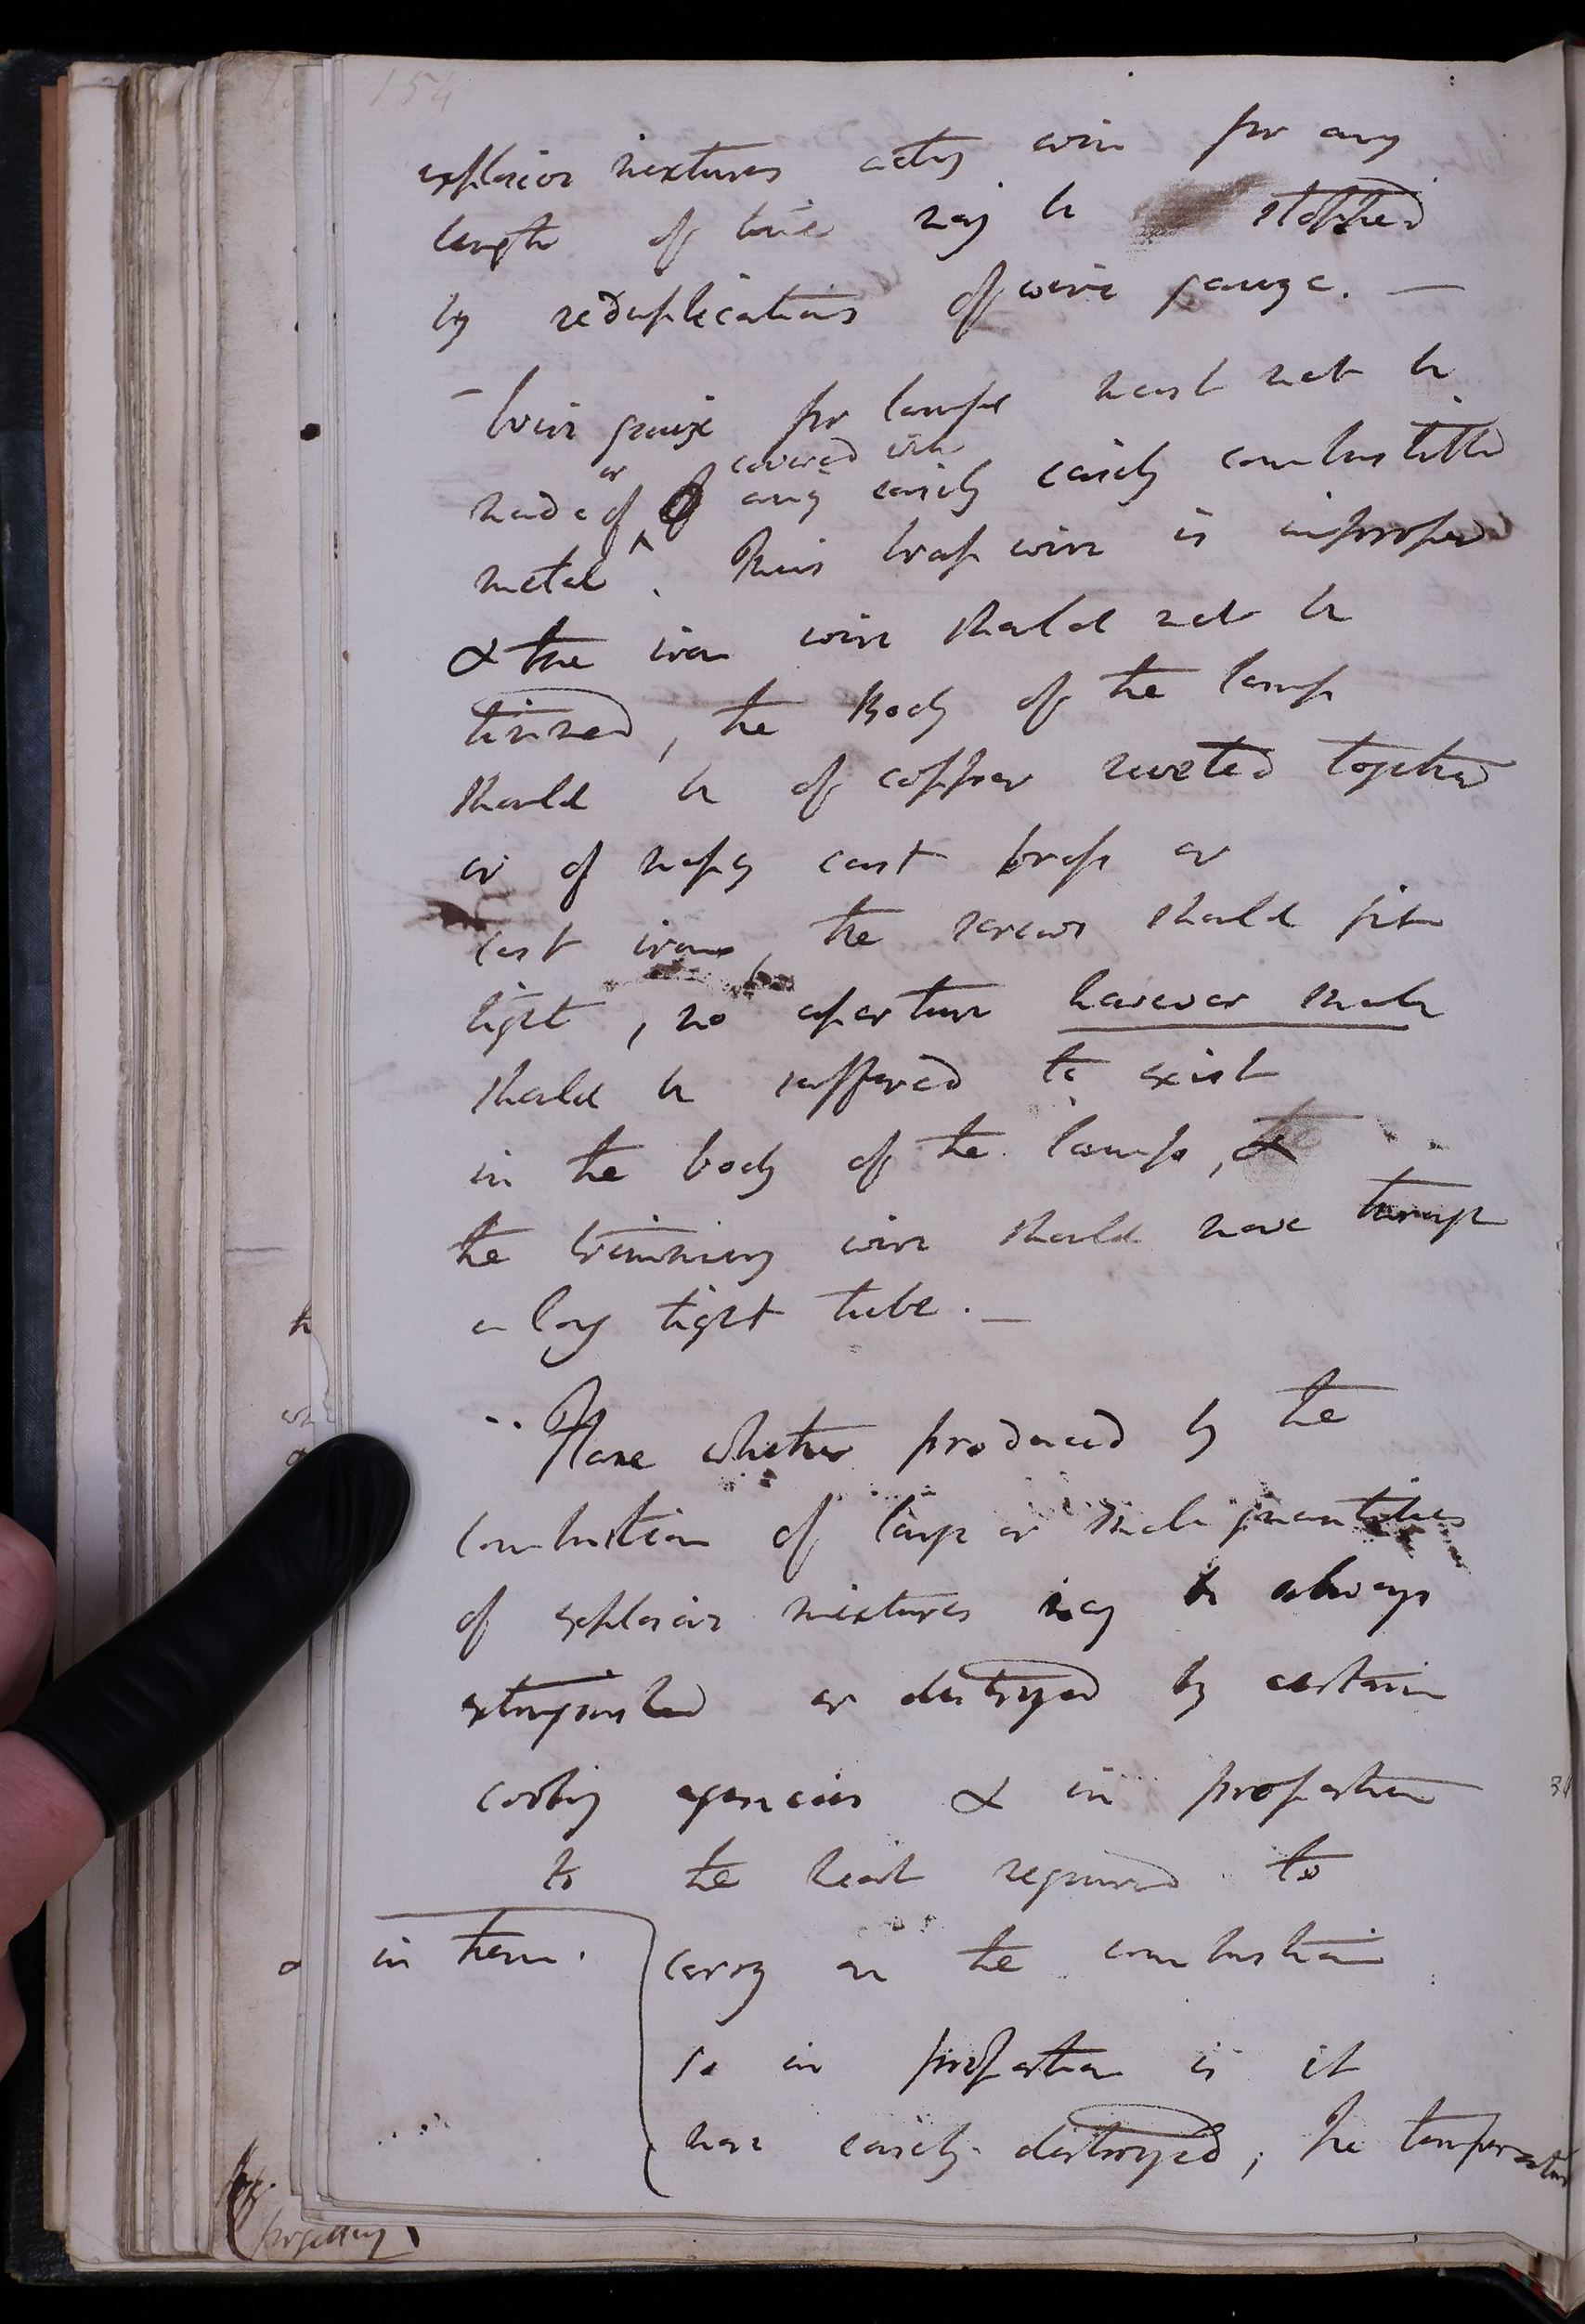 154
explosive mixtures acting even for any
length of time may be stopped
by reduplications of wire gauze. —
– Wire gauze for lamps must not be
or covered with
made of of any easily easily combustible
metal. Thus brass wire is improper
& the iron wire should not be
tinned, the Body of the lamp
should be of copper riveted together
or of massy cast brass or
cast iron, the screws should fit
tight, no aperture however small
should be suffered to exist
in the body of the lamp, &
the trimming wire should move through
a long tight tube. —
Flame whether produced by the
combustion of large or small quantities
of explosive mixtures may be always
extinguished or destroyed by certain
cooling agencies & in proportion
to the heat required to
carry on the combustion
in them.
so in proportion is it
more easily destroyed; the temperature
forgetting